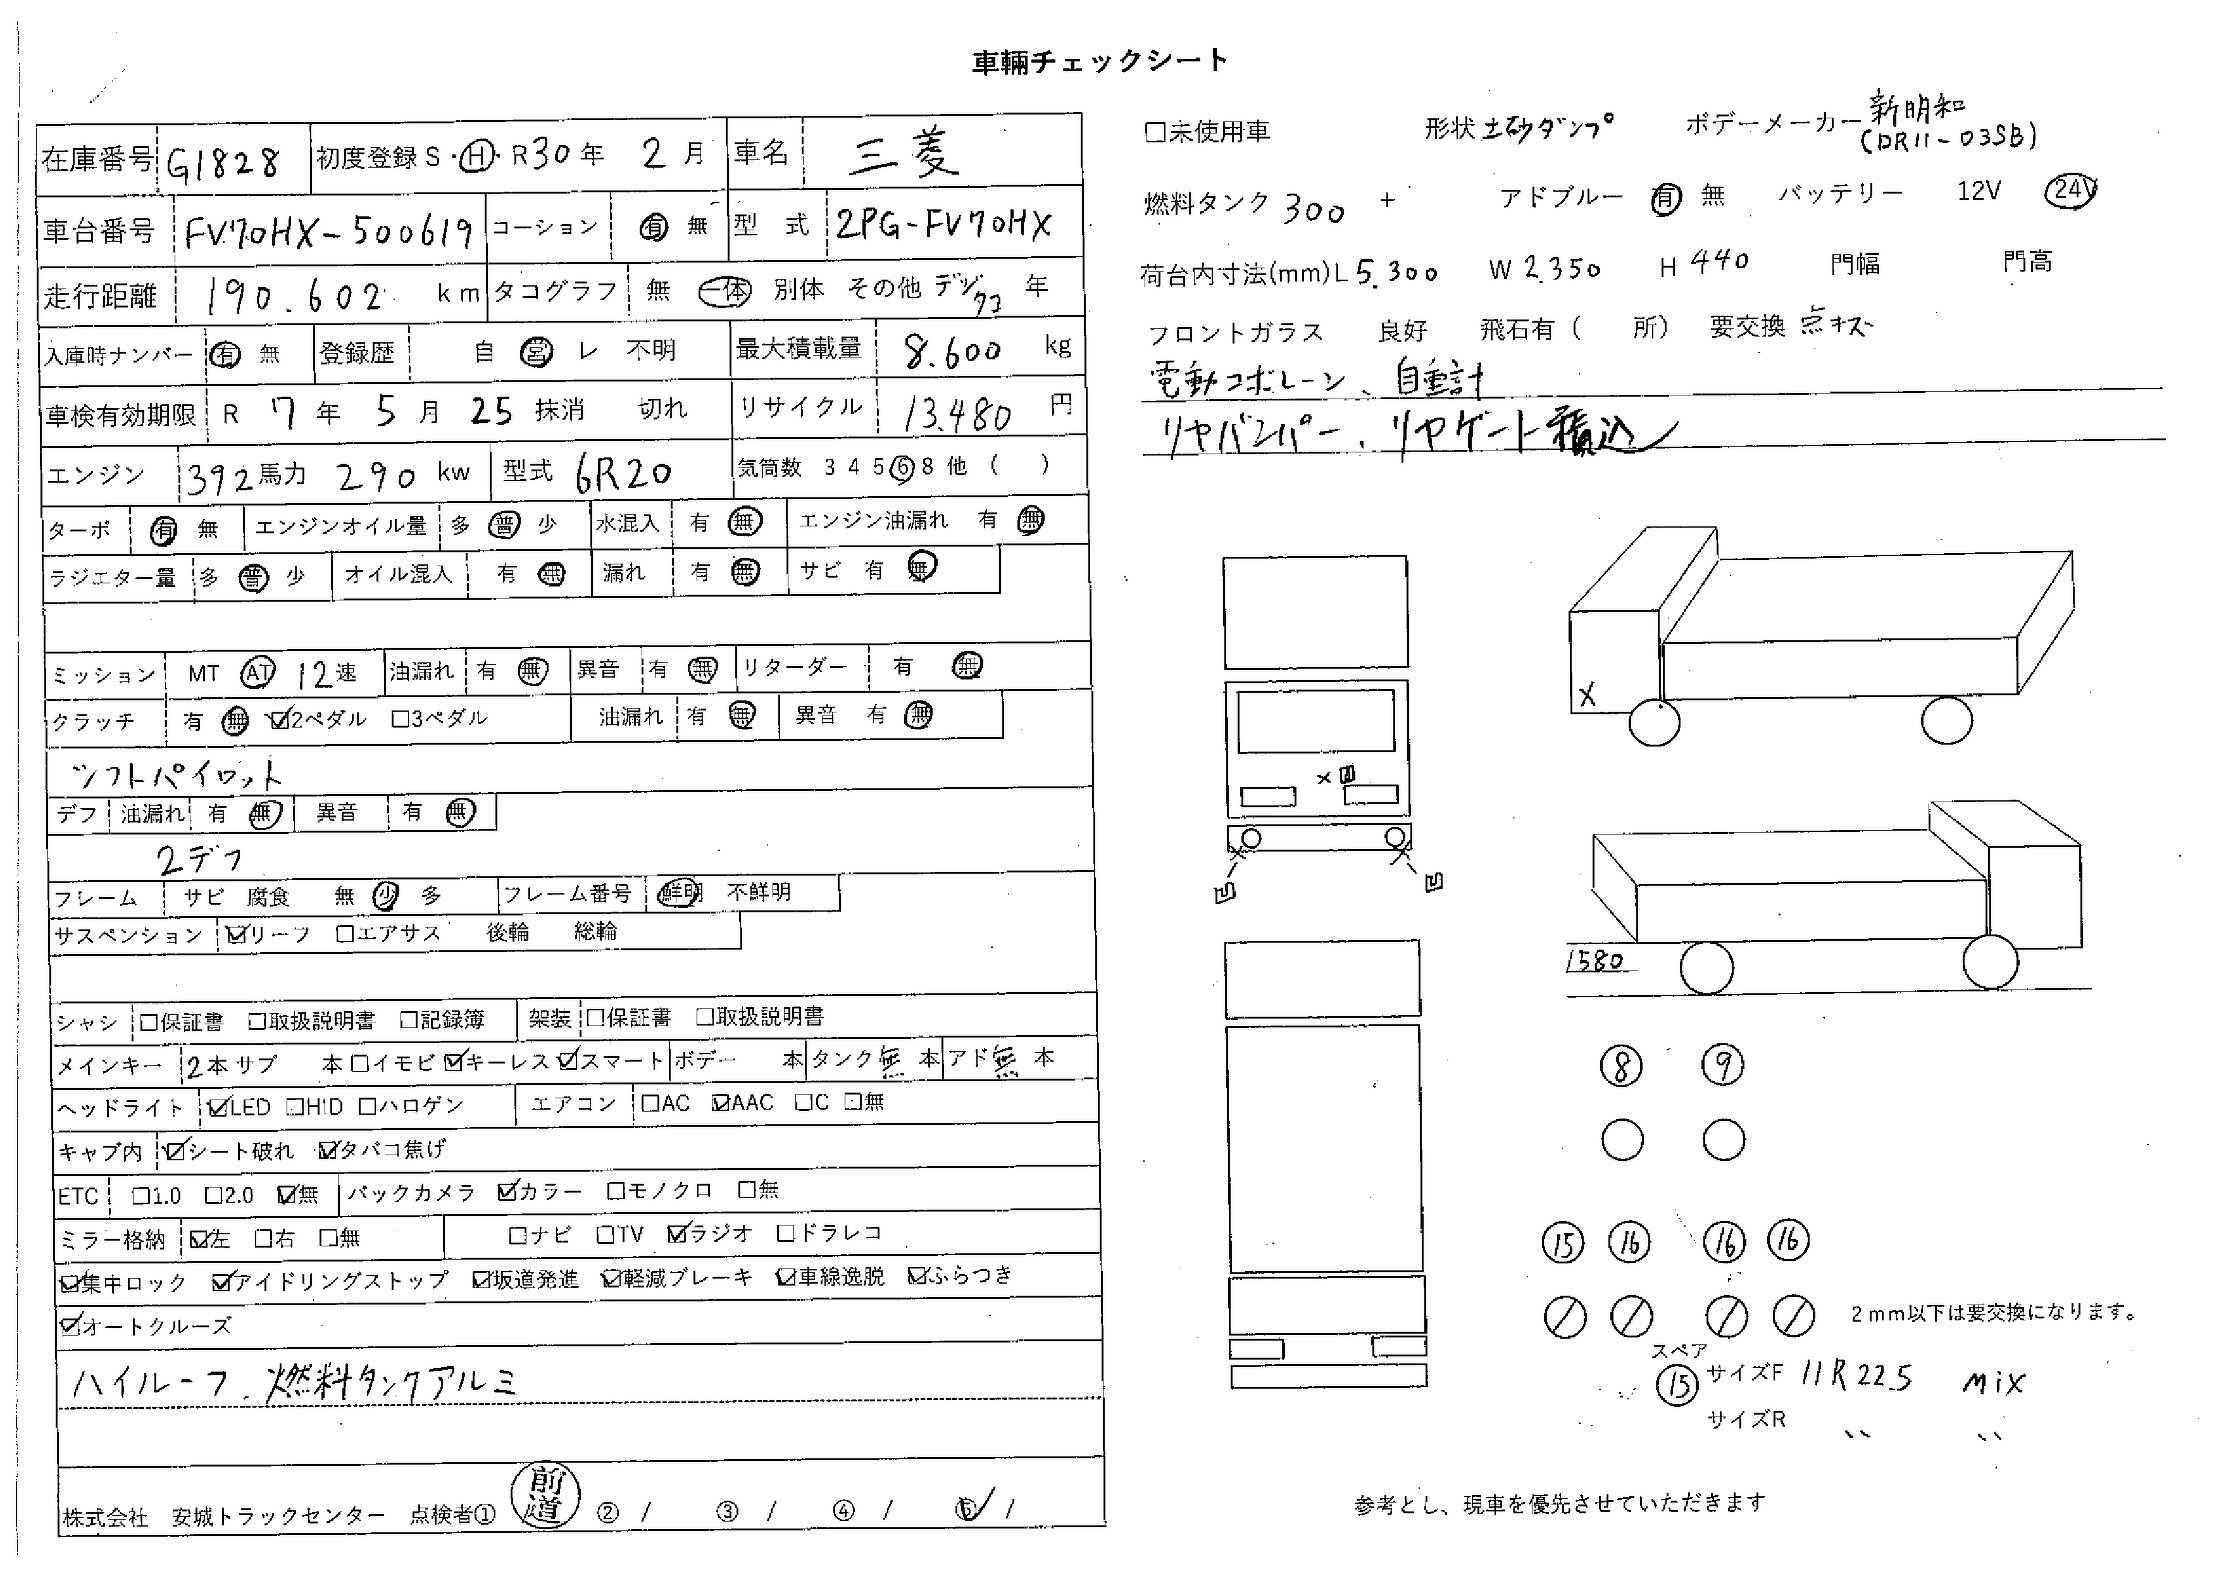 車輛チェックシート
在庫番号 G1828 初度登録 S・H・R30年 2月 車名 三菱
車台番号 FV70HX-500619 コーション 有 無 型 式 2PG-FV70HX
走行距離 190.602 km タコグラフ 無 一体 別体 その他 デジタコ 年
入庫時ナンバー 有 無 登録歴 自 営 レ 不明 最大積載量 8.600 kg
車検有効期限 R 7年 5月 25 抹消 切れ リサイクル 13.480 円
エンジン 392馬力 290 kw 型式 6R20 気筒数 3 4 5 6 8 他 ( )
ターボ 有 無 エンジンオイル量 多 普 少 水混入 有 無 エンジン油漏れ 有 無
ラジエター量 多 普 少 オイル混入 有 無 漏れ 有 無 サビ 有 無
ミッション MT AT 12速 油漏れ 有 無 異音 有 無 リターダー 有 無
クラッチ 有 無 ☑2ペダル □3ペダル 油漏れ 有 無 異音 有 無
シフトパイロット
デフ 油漏れ 有 無 異音 有 無
2デフ
フレーム サビ 腐食 無 少 多 フレーム番号 鮮明 不鮮明
サスペンション ☑リーフ □エアサス 後輪 総輪
シャシ □保証書 □取扱説明書 □記録簿 架装 □保証書 □取扱説明書
メインキー 2本 サブ 本 □イモビ ☑キーレス ☑スマート ボデー 本 タンク 無 本 アド 無 本
ヘッドライト ☑LED □HID □ハロゲン エアコン □AC ☑AAC □C □無
キャブ内 ☑シート破れ ☑タバコ焦げ
ETC □1.0 □2.0 ☑無 バックカメラ ☑カラー □モノクロ □無
ミラー格納 ☑左 □右 □無 □ナビ □TV ☑ラジオ □ドラレコ
☑集中ロック ☑アイドリングストップ ☑坂道発進 ☑軽減ブレーキ ☑車線逸脱 ☑ふらつき
☑オートクルーズ
ハイルーフ、燃料タンクアルミ
株式会社 安城トラックセンター 点検者① 前道 ② / ③ / ④ / ⑤ /
□未使用車 形状 土砂ダンプ ボデーメーカー 新明和
(DR11-03SB)
燃料タンク 300 + アドブルー 有 無 バッテリー 12V 24V
荷台内寸法(mm) L 5.300 W 2.350 H 440 門幅 門高
フロントガラス 良好 飛石有 ( 所) 要交換 点キズ
電動コボレーン、自重計
リヤバンパー、リヤゲート積込
X
X
X X
1580
8 9
15 16 16 16
2mm以下は要交換になります。
スペア
15 サイズF 11R22.5 MIX
サイズR 〃 〃
参考とし、現車を優先させていただきます